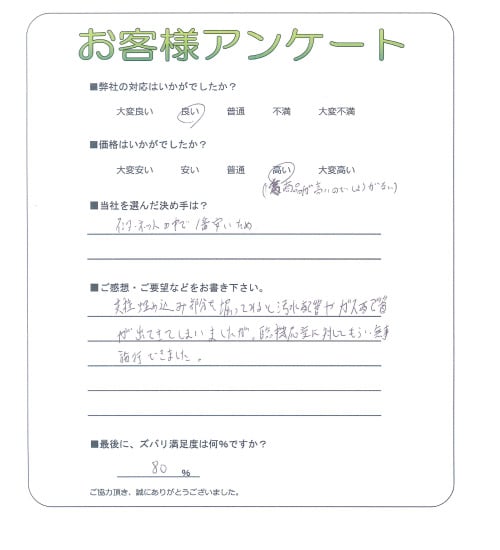 お客様アンケート
■弊社の対応はいかがでしたか？
大変良い 良い 普通 不満 大変不満
■価格はいかがでしたか？
大変安い 安い 普通 高い 大変高い
(商品が高いのでしょうがない)
■当社を選んだ決め手は？
インターネットの中で1番安いため
■ご感想・ご要望などをお書き下さい。
支柱埋め込み部分を掘ってみると汚水配管やガス配管
が出てきてしまいましたが、臨機応変に対してもらい無事
施行できました。
■最後に、ズバリ満足度は何％ですか？
80 %
ご協力頂き、誠にありがとうございました。